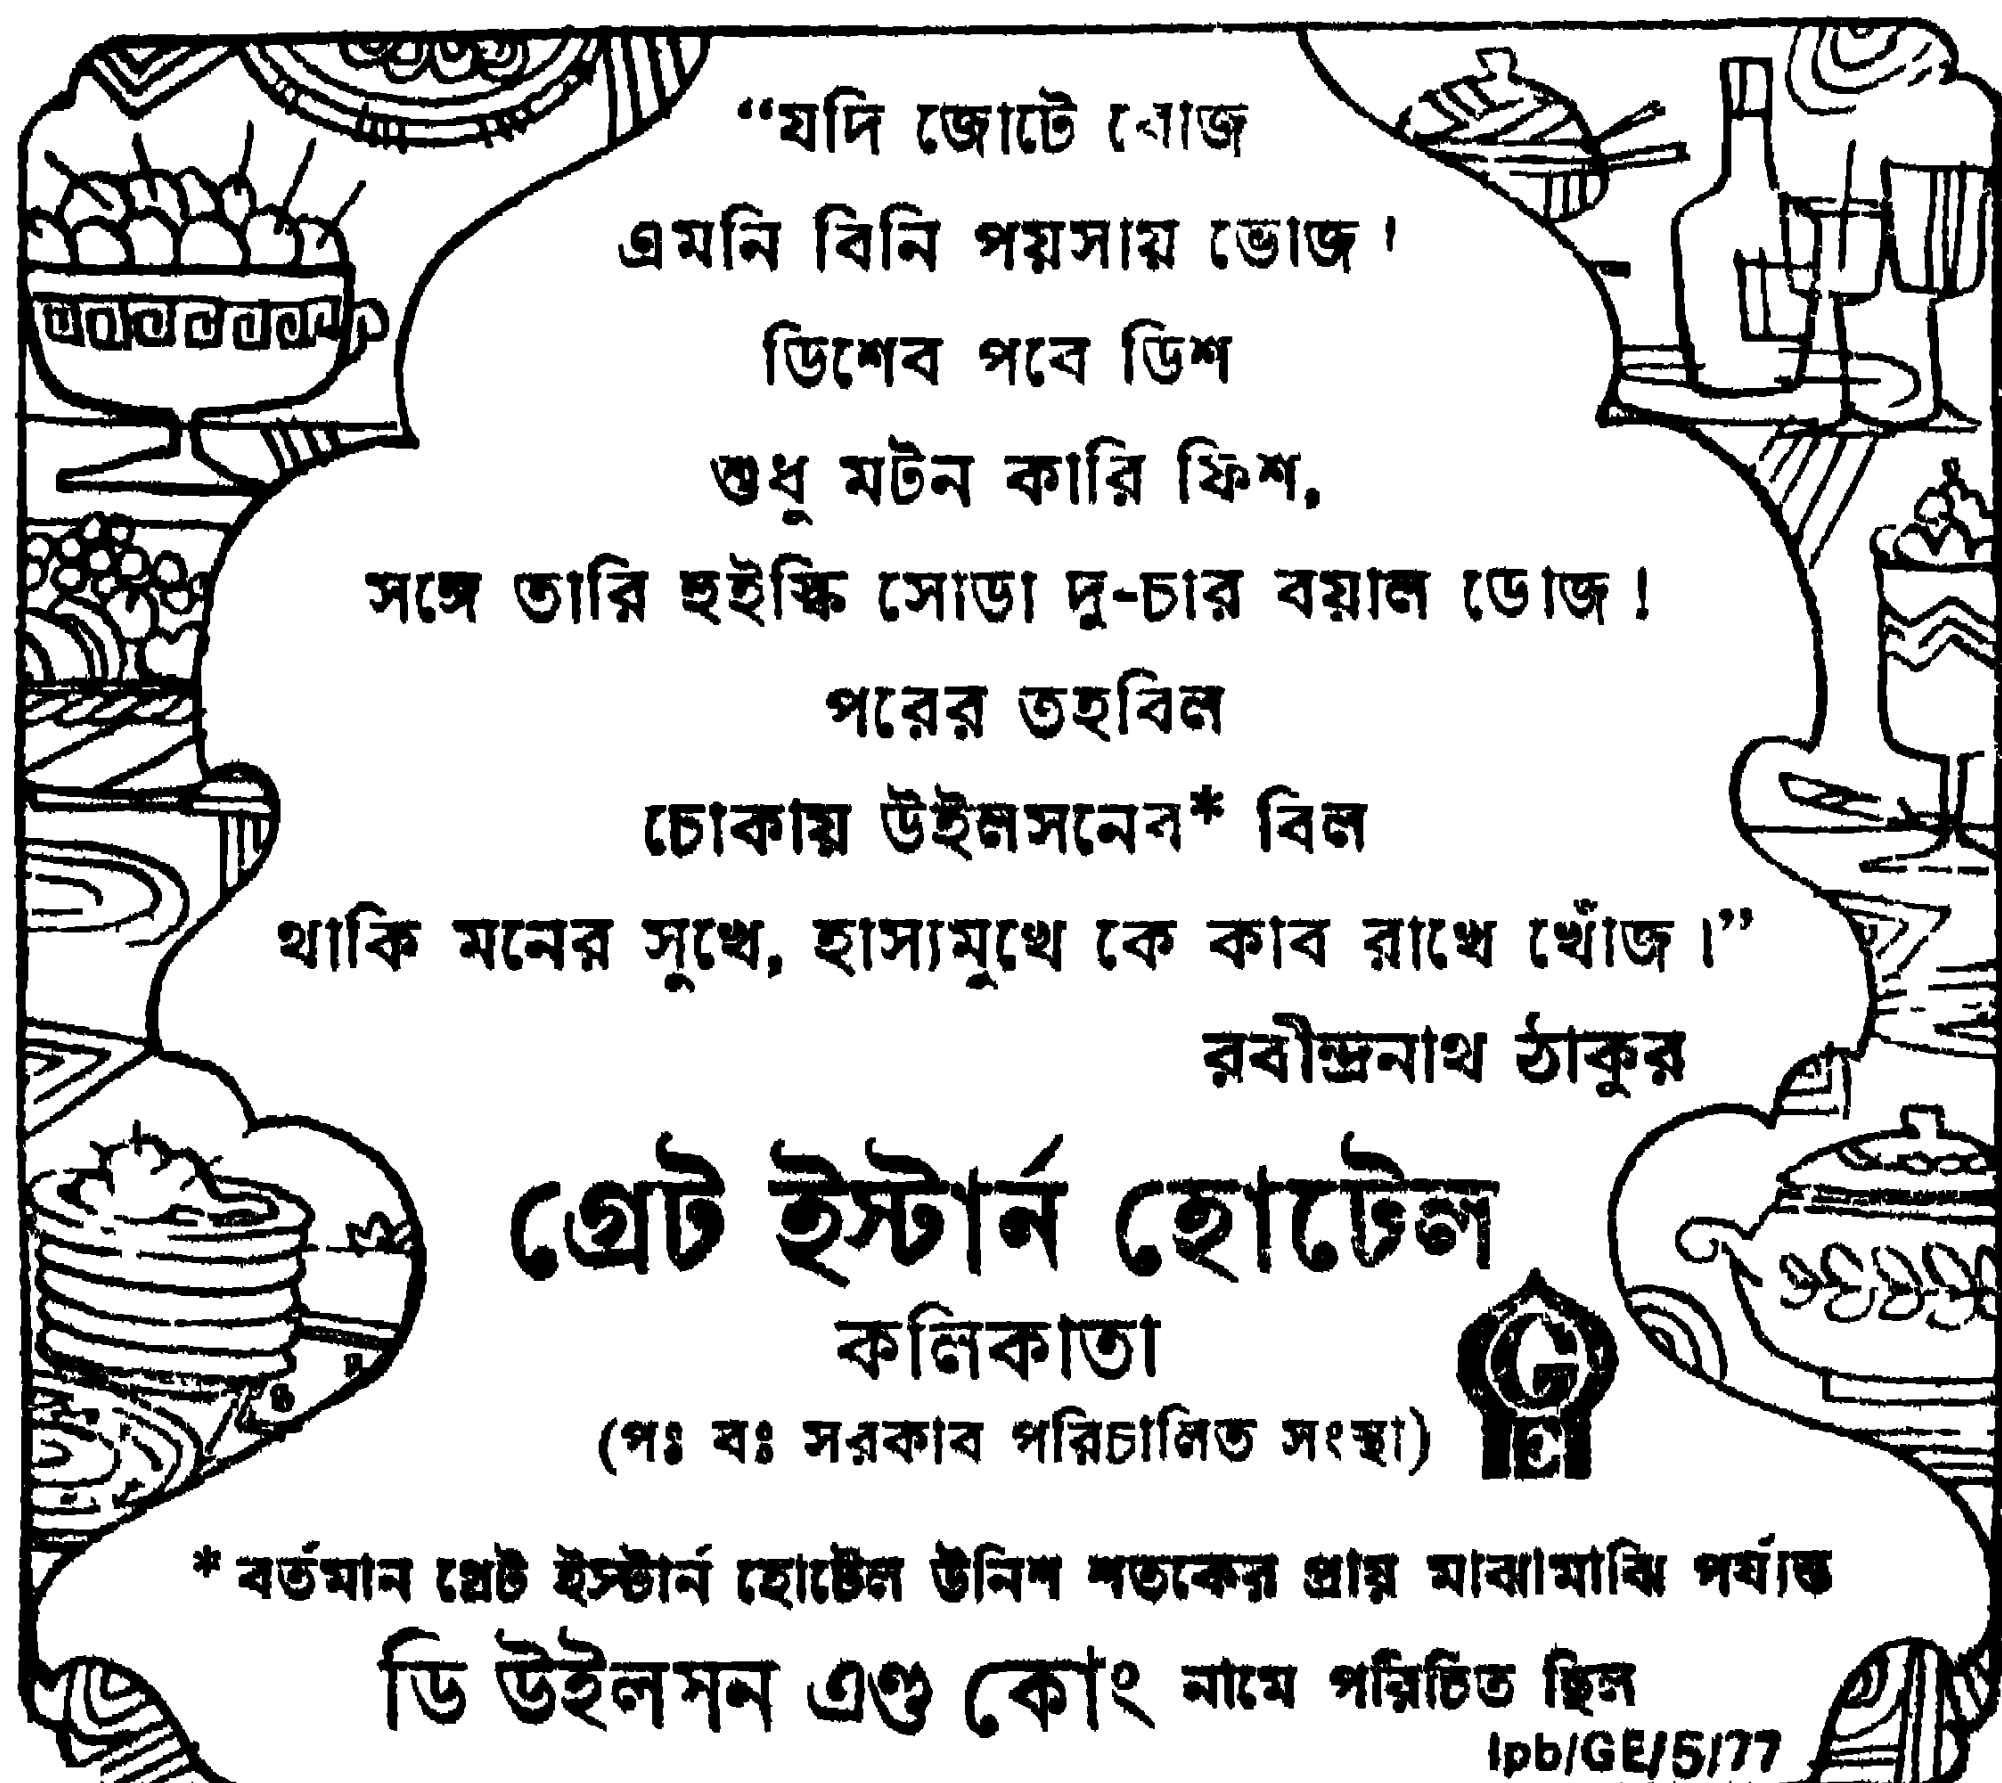 “যদি জোটে রোজ
এমনি বিনি পয়সায় ভোজ !
ডিশের পরে ডিশ
শুধু মটন কারি ফিশ,
সঙ্গে তারি হুইস্কি সোডা দু-চার রয়াল ডোজ !
পরের তহবিল
চোকায় উইলসনের* বিল
থাকি মনের সুখে, হাস্যমুখে কে কার রাখে খোঁজ ।”
রবীন্দ্রনাথ ঠাকুর
গ্রেট ইস্টার্ন হোটেল
কলিকাতা
(পঃ বঃ সরকার পরিচালিত সংস্থা)
GE
* বর্তমান গ্রেট ইস্টার্ন হোটেল উনিশ শতকের প্রায় মাঝামাঝি পর্যন্ত
ডি উইলসন এণ্ড কোং নামে পরিচিত ছিল
Ipb/GE/5/77